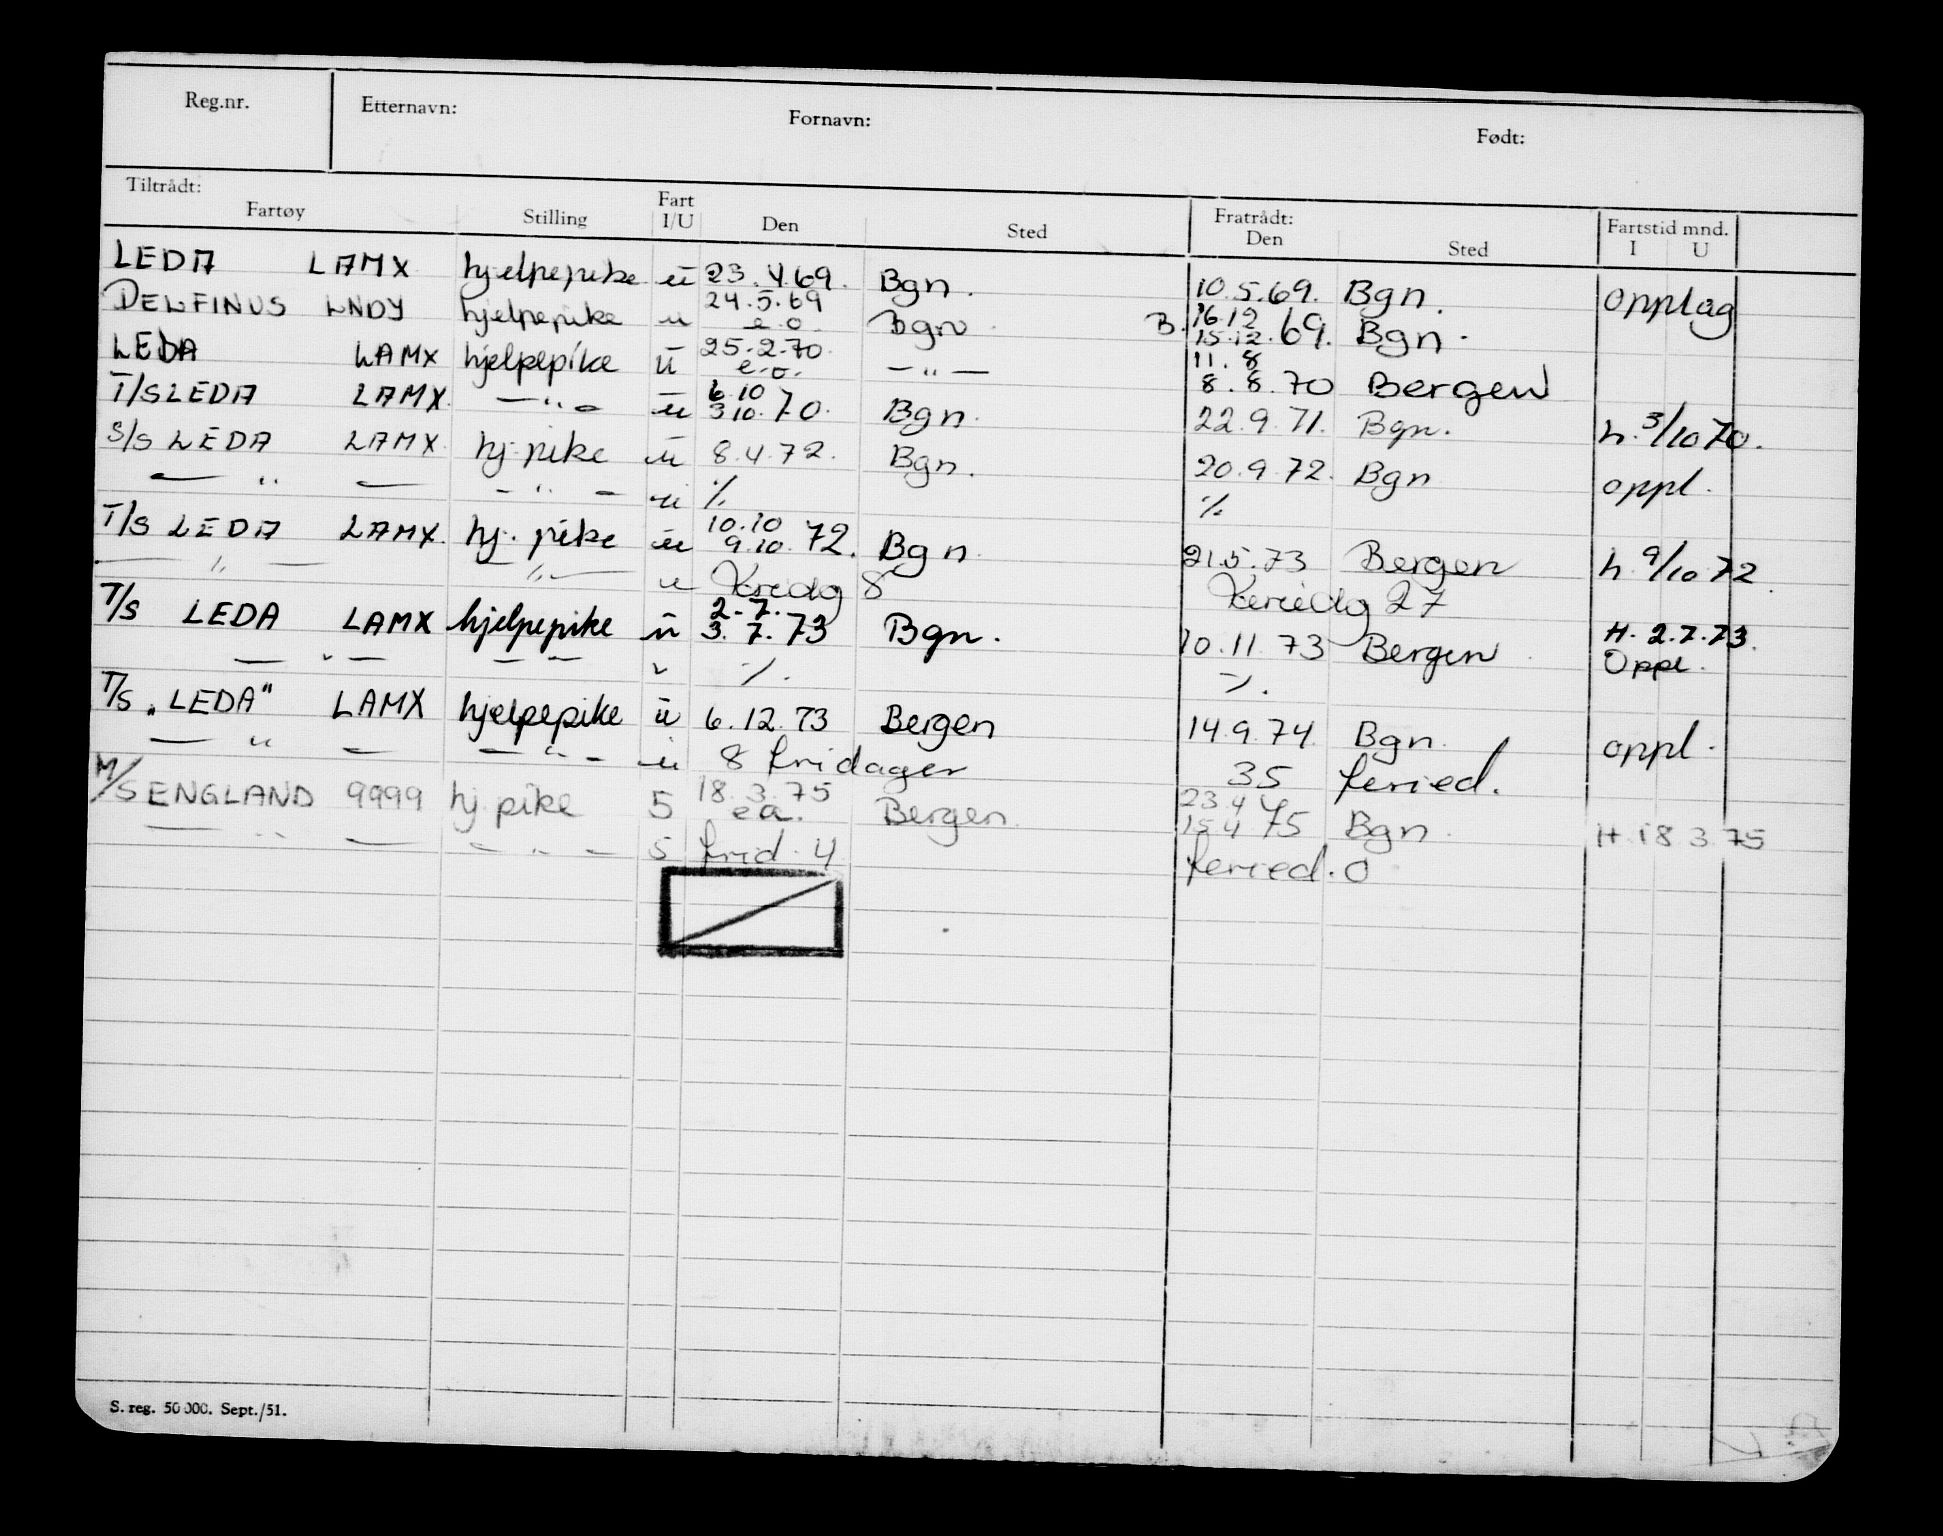 Reg.nr. Etternavn: Fornavn: Født:
Tiltrådt: Fratrådt: Fartstid mnd.
Fartøy Stilling Fart I/U Den Sted Den Sted I U
LEDA LAMX hjelpepike ü 23.4.69. Bgn. 10.5.69. Bgn. opplag
DELFINUS LNDY hjelpepike u 24.5.69 e.o. Bgn B. 16.12 15.12.69. Bgn.
LEDA LAMX hjelpepike ü 25.2.70. e.o. — " — 11.8 8.8.70 Bergen
T/S LEDA LAMX. — " — ü 6.10 3.10.70. Bgn. 22.9.71. Bgn. h. 3/10 70.
S/S LEDA LAMX hj. pike ü 8.4.72. Bgn. 20.9.72. Bgn oppl.
— " — — " — ü ./. ./.
T/S LEDA LAMX. hj. pike ü 10.10 9.10.72. Bgn. 21.5.73 Bergen h. 9/10 72
— " — — " — u 8 27
T/S LEDA LAMX hjelpepike ü 2.7. 3.7.73 Bgn. 10.11.73 Bergen H. 2.7.73. Oppl.
— " — — — " ./. ./.
T/S "LEDA" LAMX hjelpepike ü 6.12.73 Bergen 14.9.74. Bgn. oppl.
— " — — " — ü 8 fridager 35 feried.
M/S ENGLAND 9999 hj. pike 5 18.3.75 ea. Bergen. 23.4 15.4.75 Bgn. H. 18.3.75
— " — — " — 5 frid. 4 feried. 0
S. reg. 50 000. Sept./51.